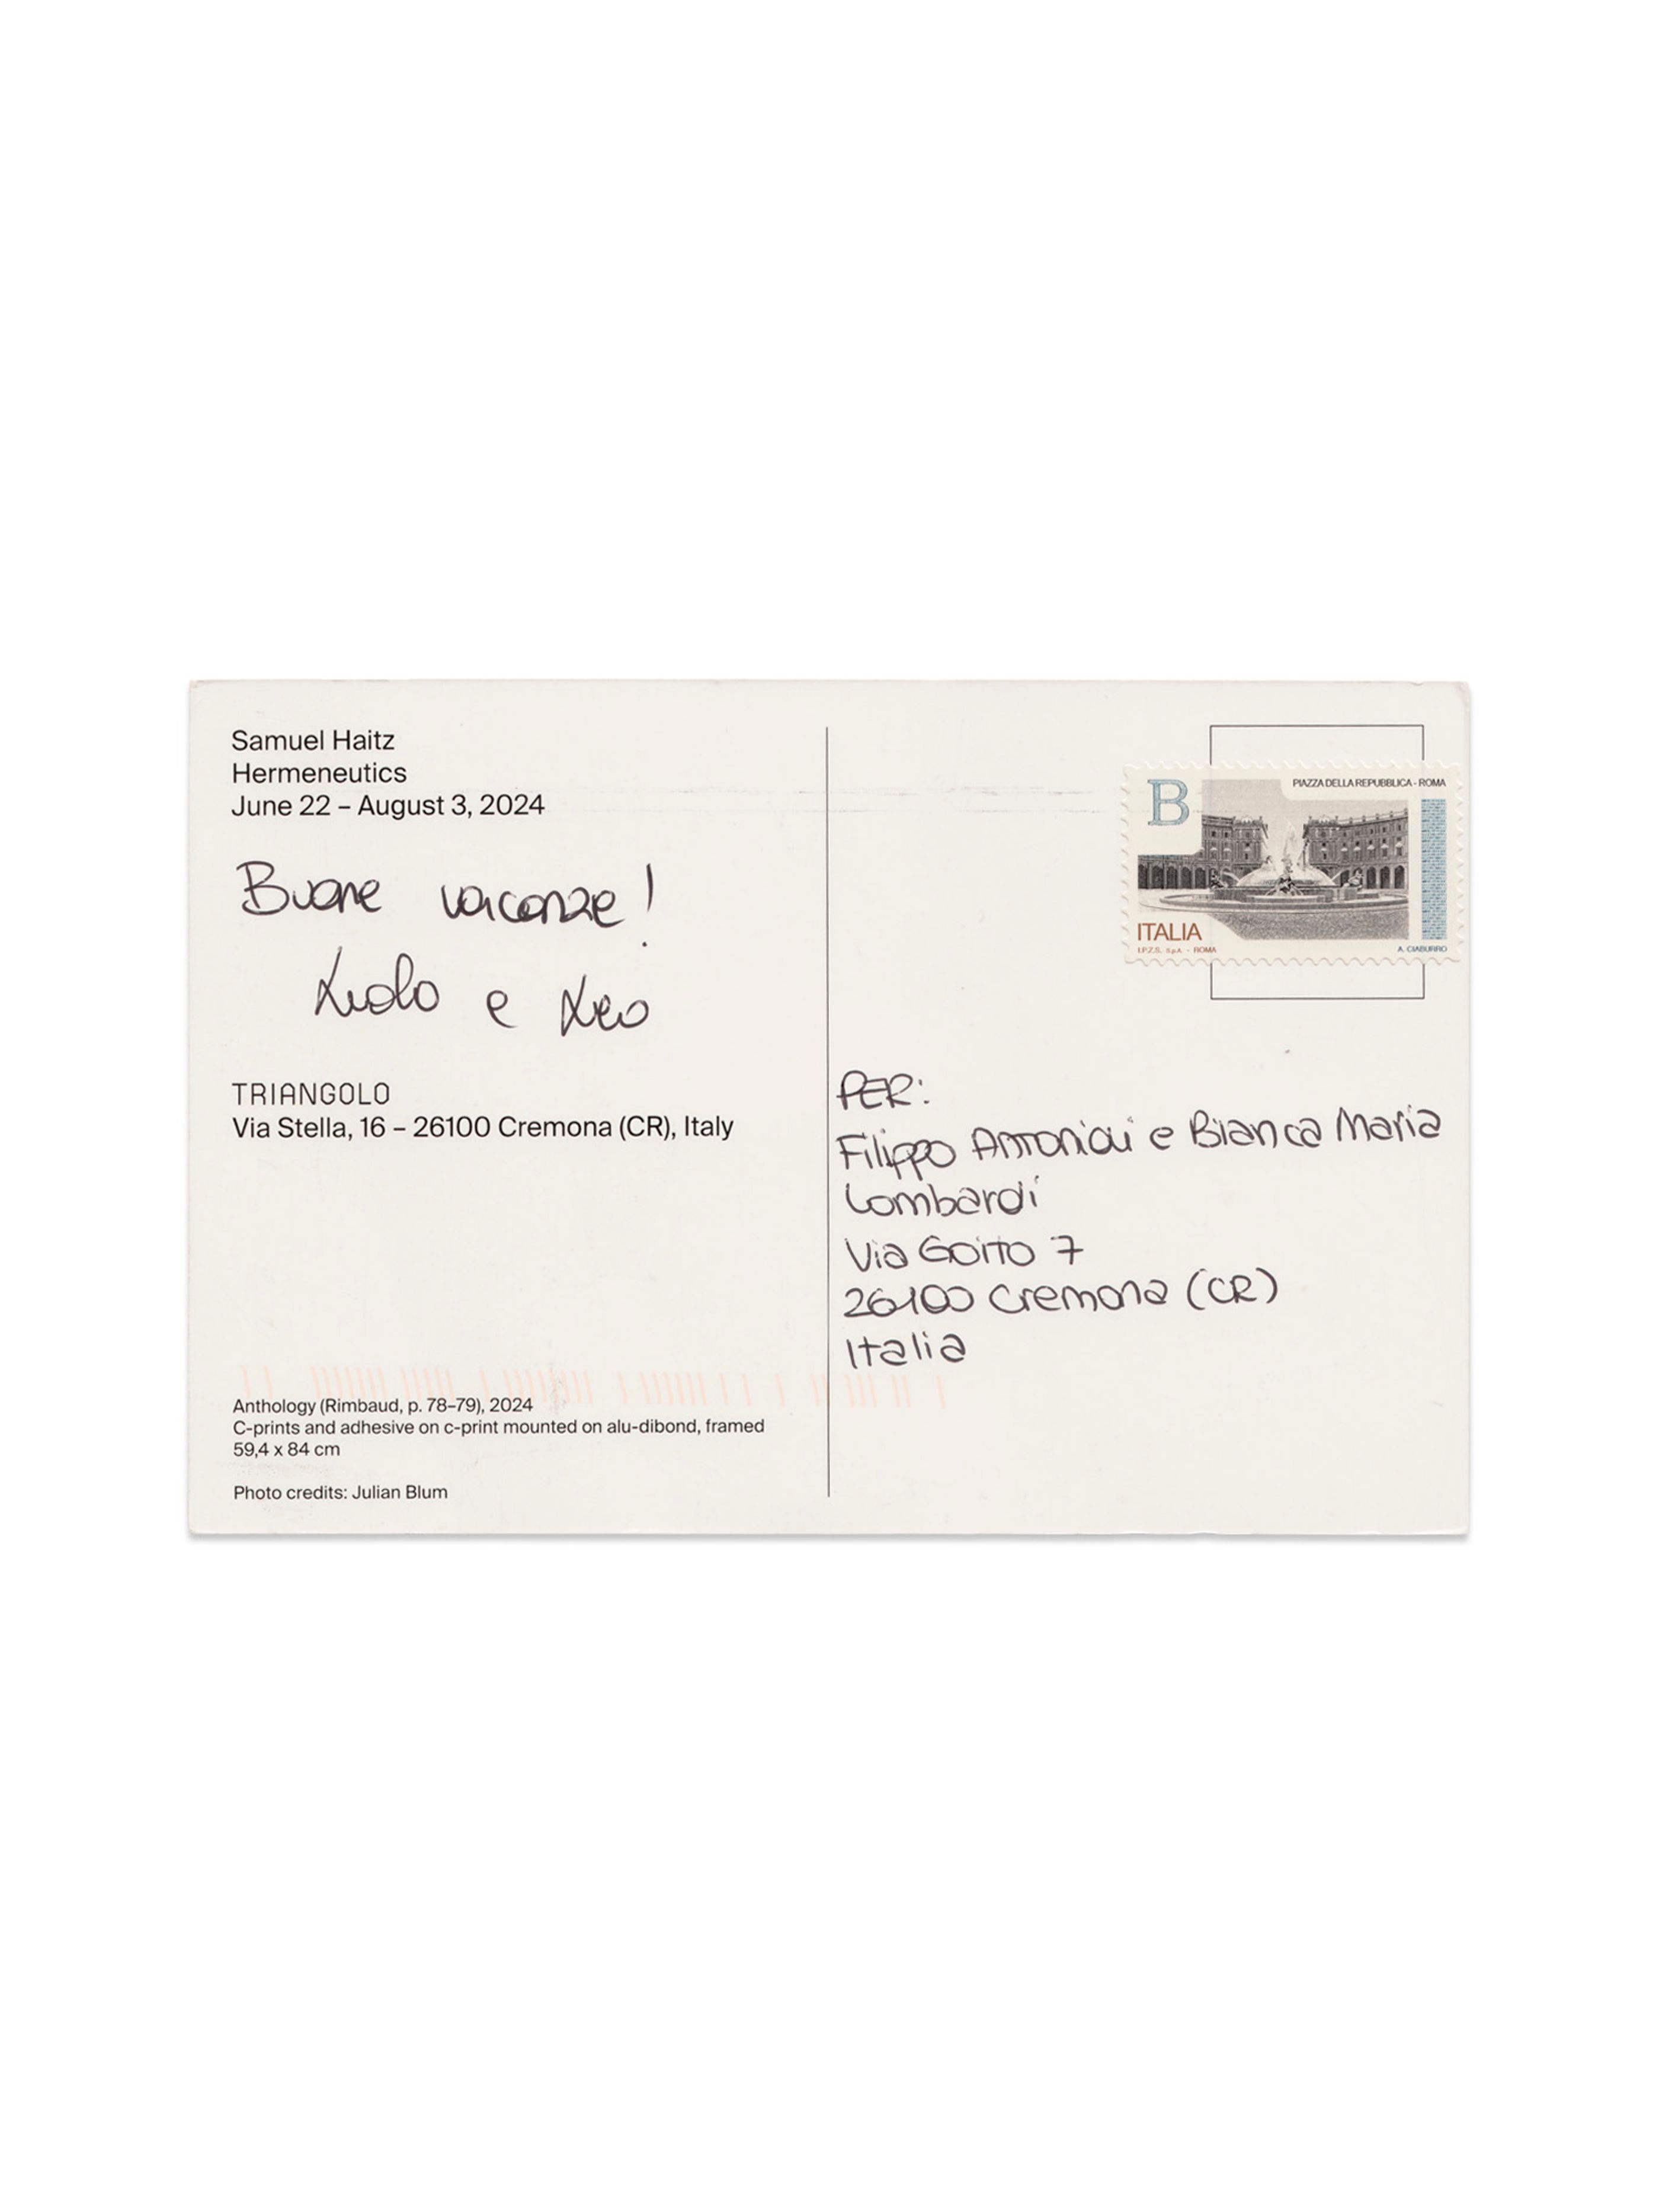 Samuel Haitz
Hermeneutics
June 22 – August 3, 2024
Buone vacanze!
e Leo
TRIANGOLO
Via Stella, 16 – 26100 Cremona (CR), Italy
Anthology (Rimbaud, p. 78–79), 2024
C-prints and adhesive on c-print mounted on alu-dibond, framed
59,4 x 84 cm
Photo credits: Julian Blum
B
PIAZZA DELLA REPUBBLICA - ROMA
ITALIA
I.P.Z.S. S.p.A. - ROMA
A. CIABURRO
PER:
Filippo e Bianca Maria
Lombardi
Via Goito 7
26100 Cremona (CR)
Italia